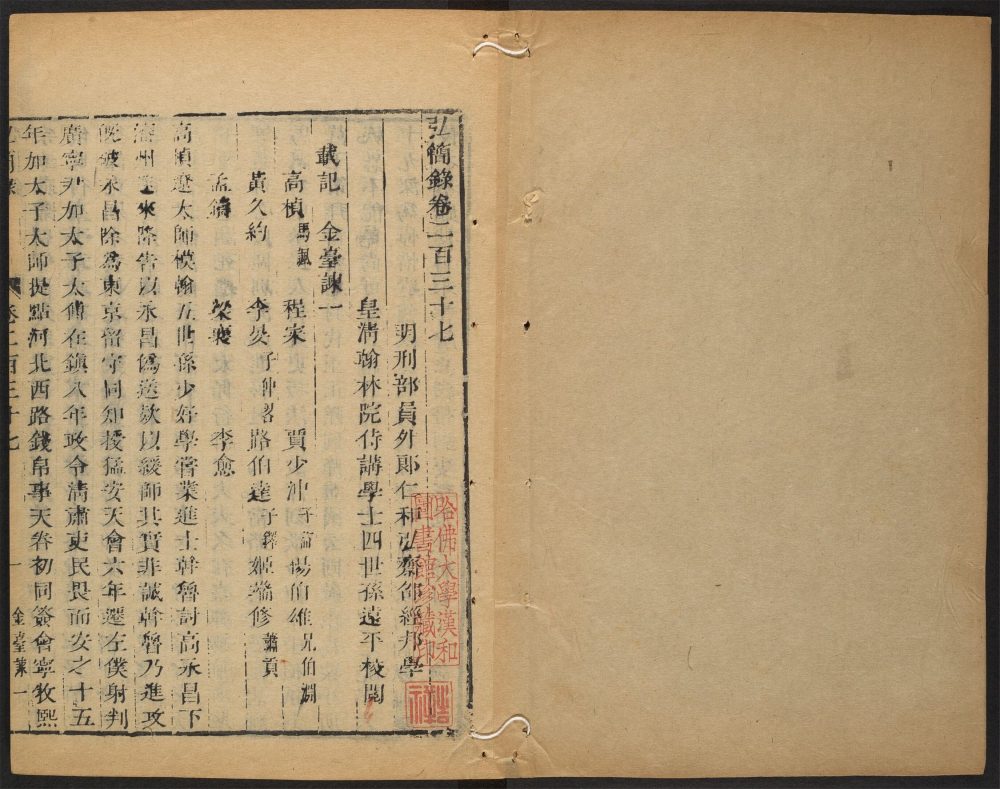 弘簡錄卷二百三十七
明刑部員外郎仁和弘齋邵經邦學
皇淸翰林院侍講學士四世孫遠平校閱
載記 金臺諫一
高楨 馬諷 程寀 賈少冲 子益 楊伯雄 兄伯淵
黃久約 李晏 子仲略 路伯達 子鐸 姬端修 蕭貢
孟鑄 梁襄 李愈
高楨遼太師模翰五世孫少好學嘗業進士斡魯討高永昌下
瀋州 來降告以永昌僞送款以緩師其實非誠斡魯乃進攻
旣破永昌除爲東京留守同知授猛安天會六年遷左僕射判
廣寧尹加太子太傅在鎮八年政令淸肅吏民畏而安之十五
年加太子太師提點河北西路錢帛事天眷初同簽會寧牧熙
弘簡錄 卷二百三十七 一 金臺諫一
哈佛大學漢和圖書館珍藏印